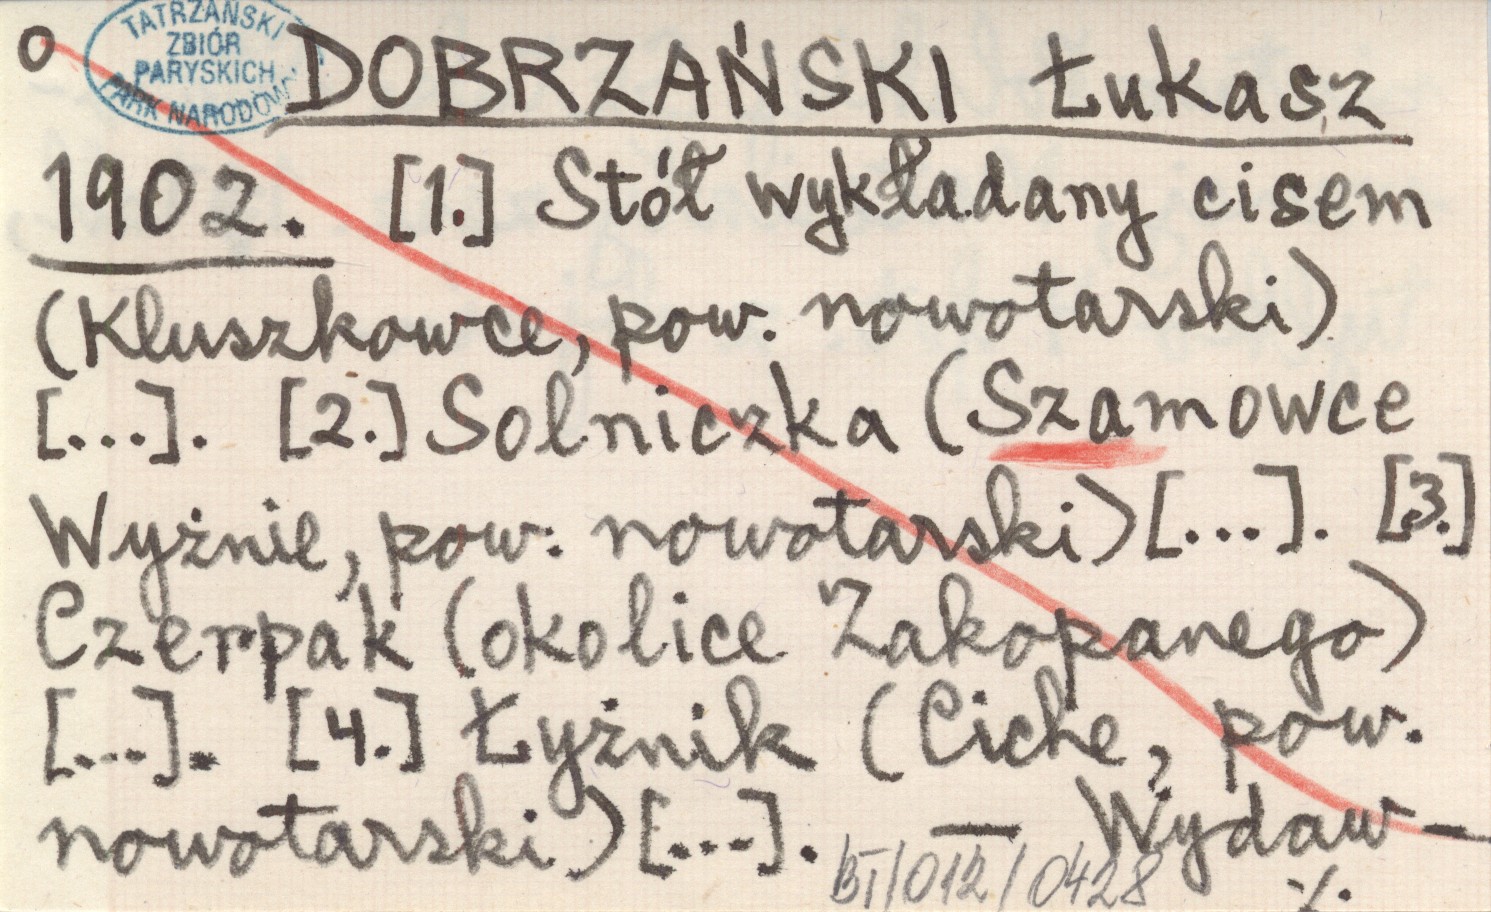 TATRZAŃSKI
ZBIÓR
PARYSKICH
PARK NARODOWY
o DOBRZAŃSKI Łukasz
1902. [1.] Stół wykładany cisem
(Kluszkowce, pow. nowotarski)
[...]. [2.] Solniczka (Szamowce
Wyżnie, pow. nowotarski) [...]. [3.]
Czerpak (okolice Zakopanego)
[...]. [4.] Łyżnik (Ciche, pow.
nowotarski) [...]. — Wydaw-
BT/012/0428
·/·